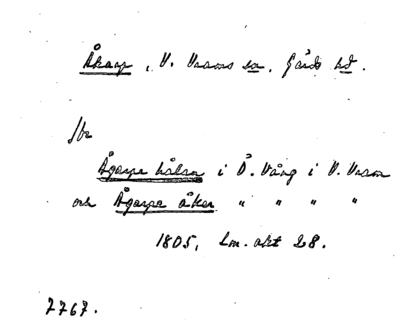 Åkarp, V. Vrams sn, Gärds hd.
Jbr
Ågarpe hålan i Ö. Vång i V. Vram
och Ågarpe åker " " " "
1805, Lm. akt 28.
7767.